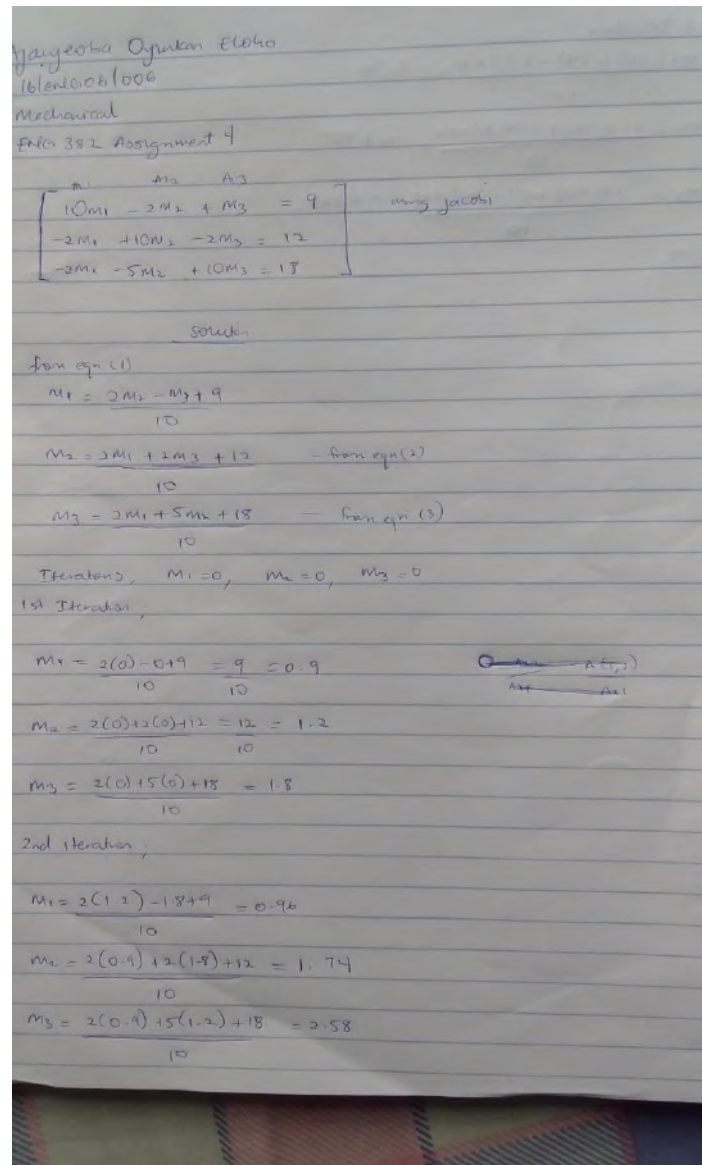 Oyinkan Eloho
16/eng06/006
Mechanical
ENG 382 Assignment 4
m1 m2 m3
10m1 - 2m2 + m3 = 9 using jacobi
-2m1 +10m2 -2m3 = 12
-2m1 -5m2 +10m3 = 18
solution
from eqn (1)
m1 = 2m2 - m3 + 9
10
m2 = 2m1 + 2m3 + 12 - from eqn (2)
10
m3 = 2m1 + 5m2 + 18 - from eqn (3)
10
Iterations, m1 = 0, m2 = 0, m3 = 0
1st Iteration;
m1 = 2(0) - 0 + 9 = 9 = 0.9
10 10
m2 = 2(0)+2(0)+12 = 12 = 1.2
10 10
m3 = 2(0)+5(0)+18 = 1.8
10
2nd iteration;
m1 = 2(1.2) - 1.8 + 9 = 0.96
10
m2 = 2(0.9) + 2(1.8) + 12 = 1.74
10
m3 = 2(0.9) + 5(1.2) + 18 = 2.58
10